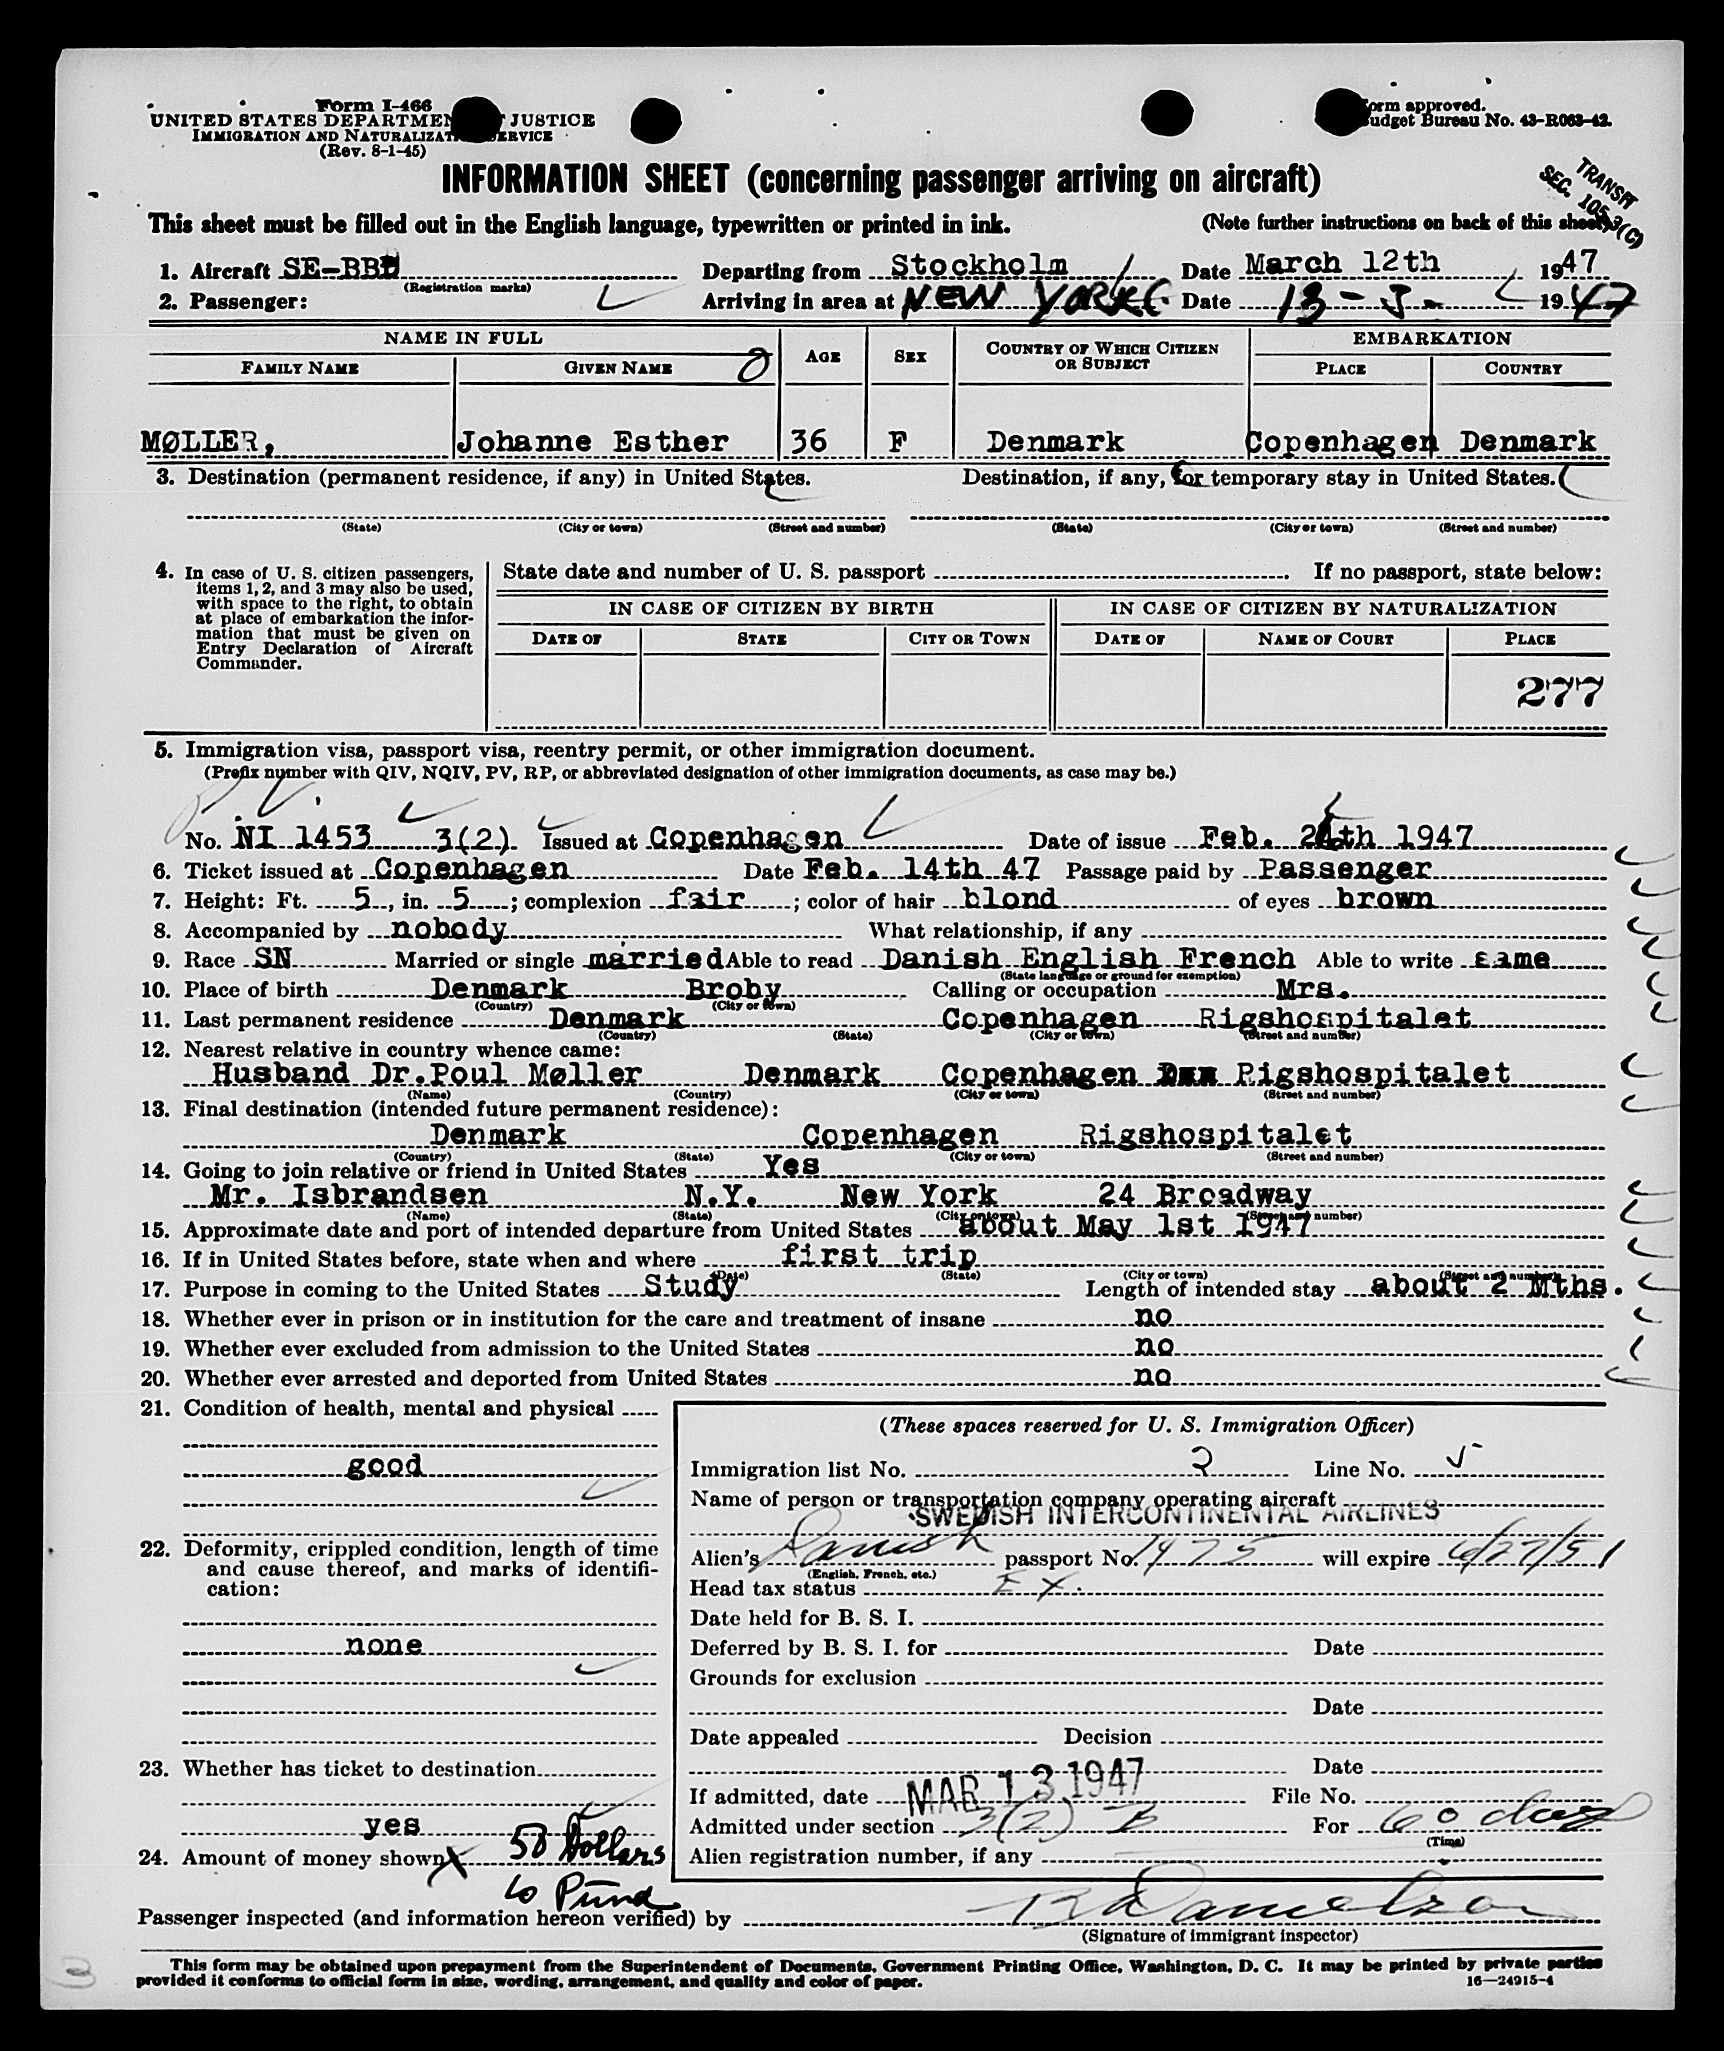 Form I-466
UNITED STATES DEPARTMENT JUSTICE
IMMIGRATION AND NATURALIZATION SERVICE
(Rev. 8-1-45)
Form approved.
Budget Bureau No. 43-R063-42.
INFORMATION SHEET (concerning passenger arriving on aircraft)
TRANSIT
SEC. 105.3(C)
This sheet must be filled out in the English language, typewritten or printed in ink. (Note further instructions on back of this sheet)
1. Aircraft SE-BBD Departing from Stockholm Date March 12th 1947
(Registration marks)
2. Passenger: Arriving in area at NEW YORK Date 13-3- 1947
NAME IN FULL AGE SEX COUNTRY OF WHICH CITIZEN OR SUBJECT EMBARKATION
FAMILY NAME GIVEN NAME PLACE COUNTRY
MØLLER, Johanne Esther 36 F Denmark Copenhagen Denmark
3. Destination (permanent residence, if any) in United States. Destination, if any, for temporary stay in United States.
(State) (City or town) (Street and number) (State) (City or town) (Street and number)
4. In case of U. S. citizen passengers, items 1, 2, and 3 may also be used, with space to the right, to obtain at place of embarkation the information that must be given on Entry Declaration of Aircraft Commander.
State date and number of U. S. passport . If no passport, state below:
IN CASE OF CITIZEN BY BIRTH IN CASE OF CITIZEN BY NATURALIZATION
DATE OF STATE CITY OR TOWN DATE OF NAME OF COURT PLACE
277
5. Immigration visa, passport visa, reentry permit, or other immigration document.
(Prefix number with QIV, NQIV, PV, RP, or abbreviated designation of other immigration documents, as case may be.)
P.V.
No. NI 1453 3(2) Issued at Copenhagen Date of issue Feb. 24th 1947
6. Ticket issued at Copenhagen Date Feb. 14th 47 Passage paid by Passenger
7. Height: Ft. 5, in. 5; complexion fair; color of hair blond of eyes brown
8. Accompanied by nobody What relationship, if any
9. Race SN Married or single married Able to read Danish English French Able to write same
(State language or ground for exemption)
10. Place of birth Denmark Broby Calling or occupation Mrs.
(Country) (City or town)
11. Last permanent residence Denmark Copenhagen Rigshospitalet
(Country) (State) (City or town) (Street and number)
12. Nearest relative in country whence came:
Husband Dr.Poul Møller Denmark Copenhagen Rigshospitalet
(Name) (Country) (City or town) (Street and number)
13. Final destination (intended future permanent residence):
Denmark Copenhagen Rigshospitalet
(Country) (State) (City or town) (Street and number)
14. Going to join relative or friend in United States Yes
Mr. Isbrandsen N.Y. New York 24 Broadway
(Name) (State) (City or town) (Street and number)
15. Approximate date and port of intended departure from United States about May 1st 1947
16. If in United States before, state when and where first trip
(Date) (State) (City or town) (Street and number)
17. Purpose in coming to the United States Study Length of intended stay about 2 Mths.
18. Whether ever in prison or in institution for the care and treatment of insane no
19. Whether ever excluded from admission to the United States no
20. Whether ever arrested and deported from United States no
21. Condition of health, mental and physical
good
22. Deformity, crippled condition, length of time and cause thereof, and marks of identification:
none
23. Whether has ticket to destination
yes
24. Amount of money shown 50 Dollars
10 Pund
(These spaces reserved for U. S. Immigration Officer)
Immigration list No. 2 Line No. 5
Name of person or transportation company operating aircraft
SWEDISH INTERCONTINENTAL AIRLINES
Alien's Danish passport No. 1475 will expire 6/27/51
(English, French, etc.)
Head tax status EX.
Date held for B. S. I.
Deferred by B. S. I. for Date
Grounds for exclusion
Date
Date appealed Decision
Date
If admitted, date MAR 13 1947 File No.
Admitted under section 3(2) B For 60 days
(Time)
Alien registration number, if any
Passenger inspected (and information hereon verified) by
(Signature of immigrant inspector)
This form may be obtained upon prepayment from the Superintendent of Documents, Government Printing Office, Washington, D. C. It may be printed by private parties
provided it conforms to official form in size, wording, arrangement, and quality and color of paper. 16—24915-4
3